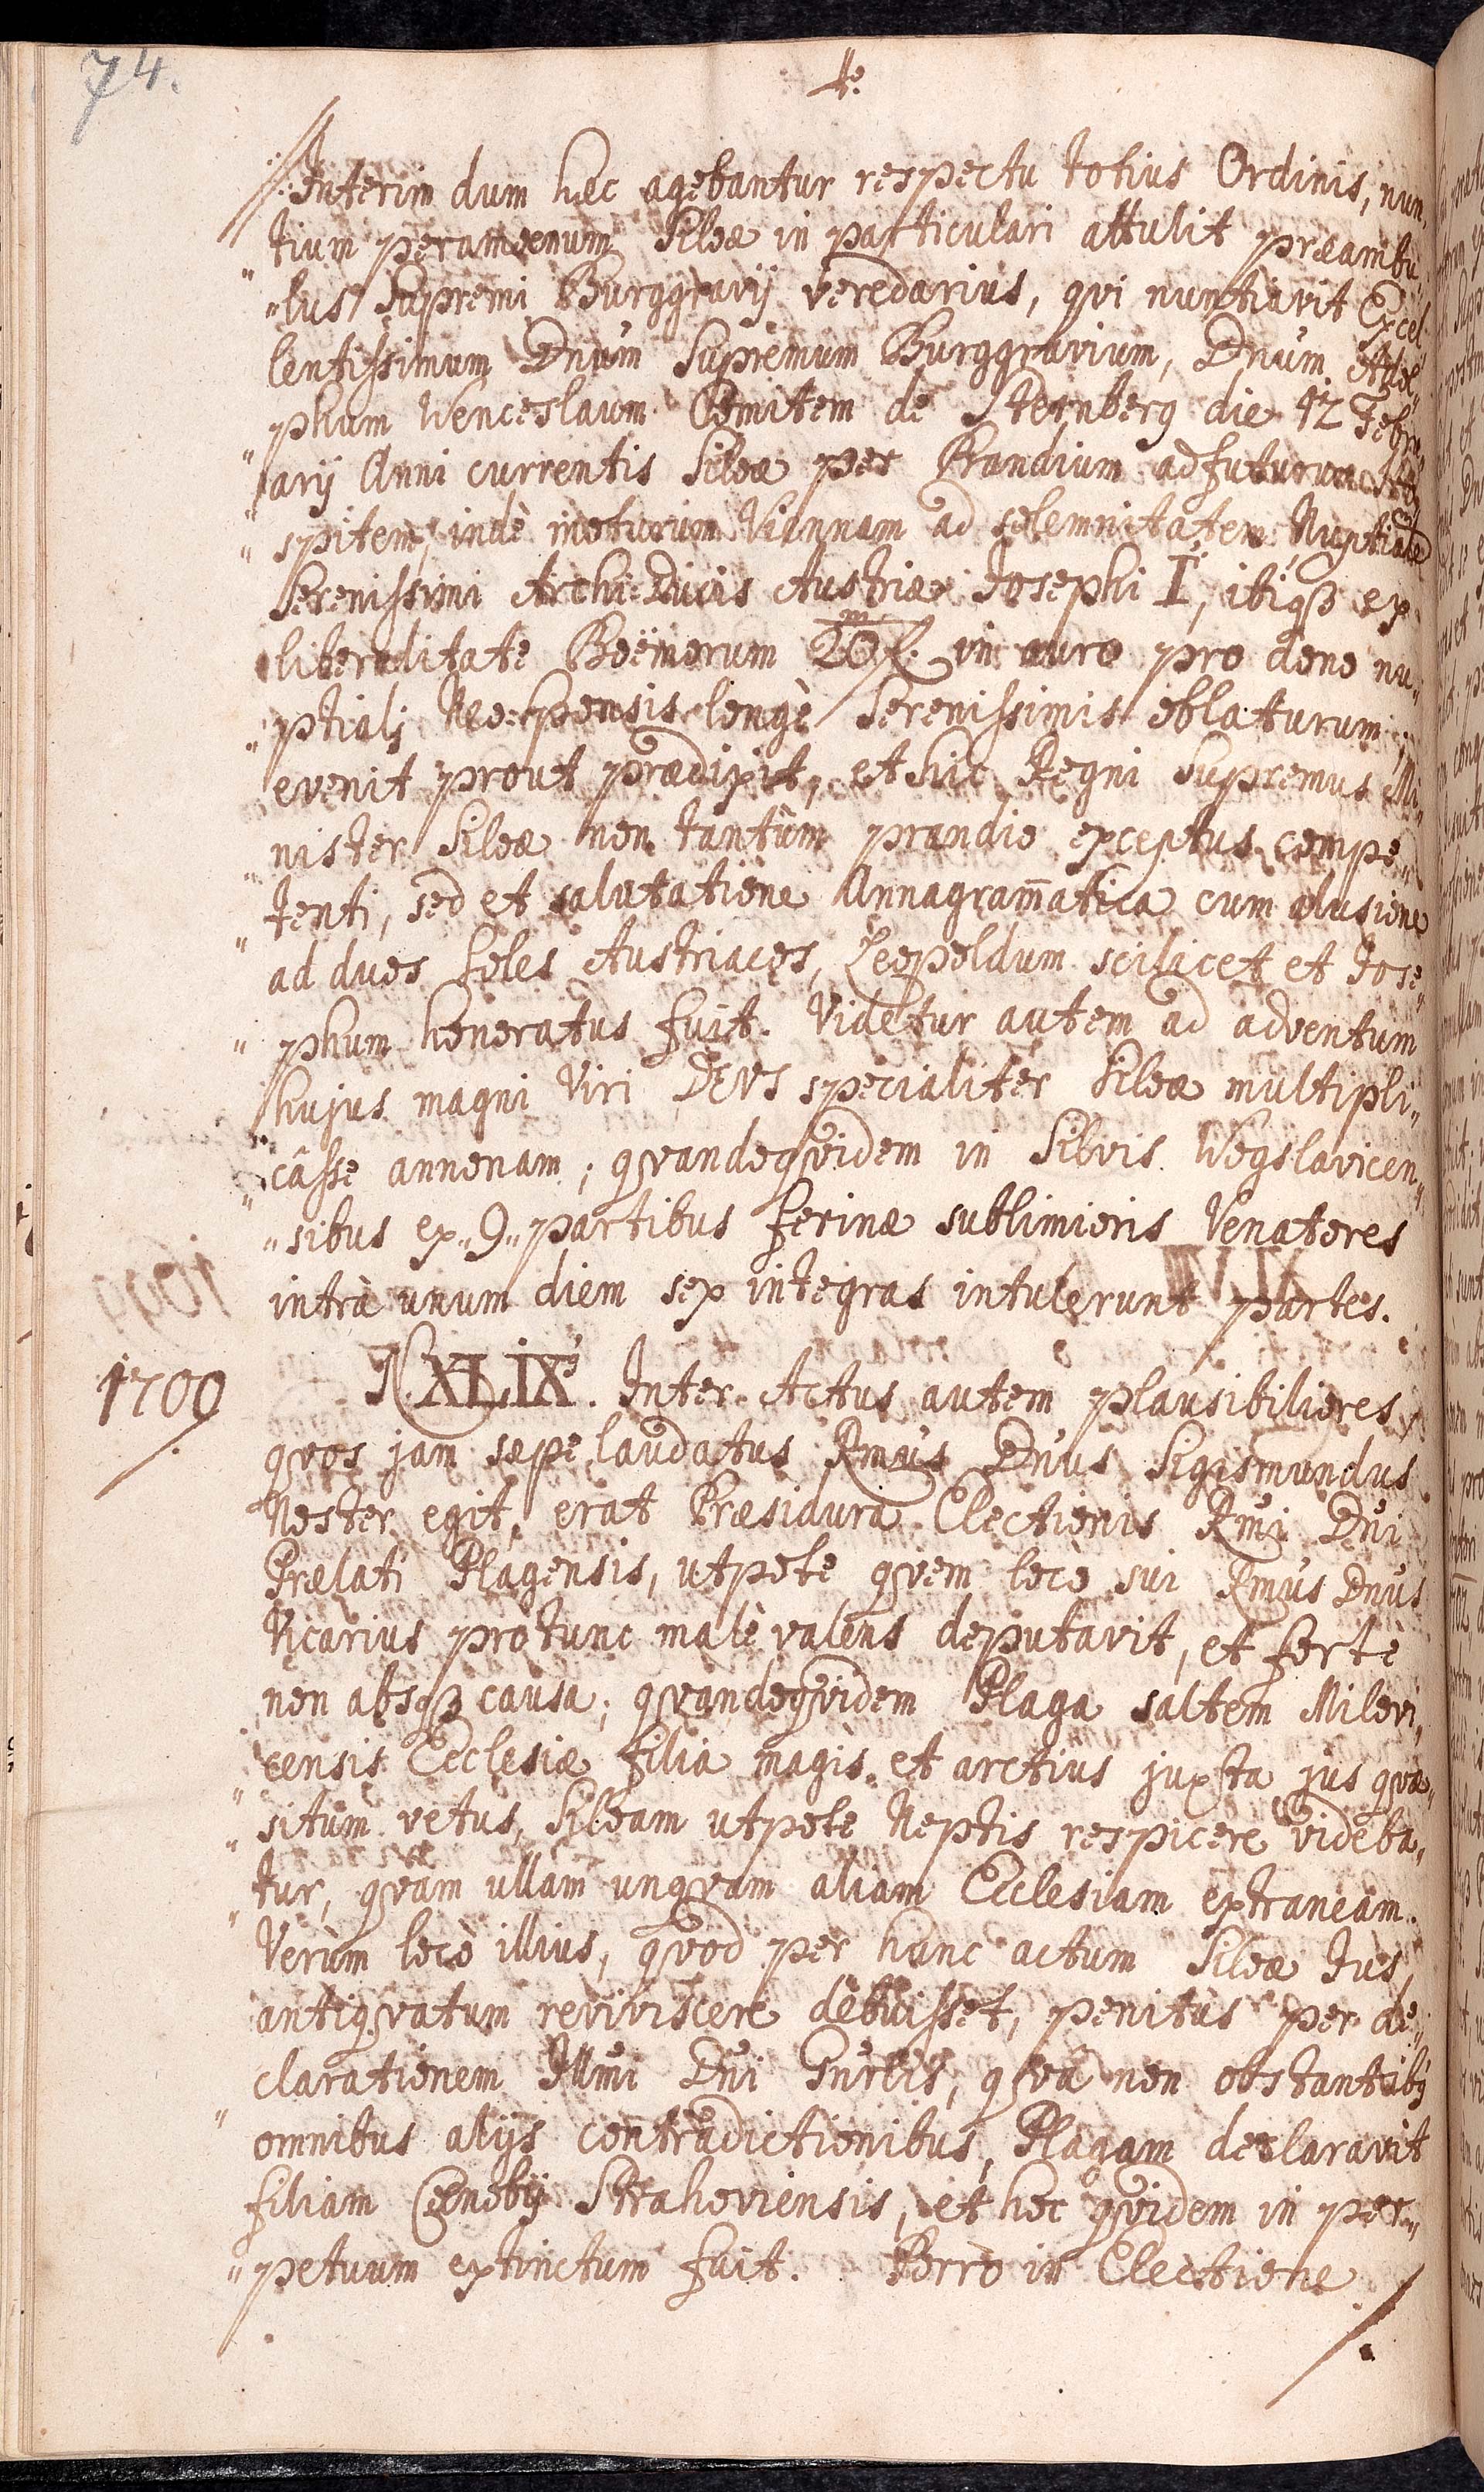 74.
Interim dum hæc agebantur respectu totius Ordinis, nun„
„tium peramoenum Siloæ in particulari attulit præambu„
„lus Supremi Burggravij veredarius, qvi nuntiavit Excel„
lentissimum Dnum Supremum Burggravium, Dnum Adol„
„phum Wenceslaum Comitem de Sternberg die 12 Febru„
„arij Anni currentis Siloæ per Prandium adfuturum Ho„
„spitem, inde moturum Viennam ad solemnitatem Nuptialē
Serenissimi Archi-Ducis Austriæ Josephi I, ibiqз ex
liberalitate Boëmorum 20 m f. in auro pro dono nu„
„ptiali Neo-sponsis longè Serenissimis oblaturum;
evenit prout prædixit, et hic Regni Supremus Mi„
„nister Siloæ non tantùm prandio exceptus compe„
„tenti, sed et salutatione Annagram̄atica cum alusione
ad duos Soles Austriacos, Leopoldum scilicet et Jose„
„phum honoratus fuit. Videtur autem ad adventum
hujus magni Viri DEVS specialiter Siloæ multipli„
„câsse annonam; qvandoqvidem in Silvis Wogslavicen„
„sibus ex „9„ partibus ferinæ sublimioris Venatores
intrà unum diem sex integras intulerunt partes.
1700
N. XLIX. Inter Actus autem plausibiliores,
qvos jam sæpe laudatus Rmus Dnus Sigismundus
Noster egit, erat Præsidura Electionis Rmi Dni
Prælati Plagensis, utpote qvem locò sui Rmus Dnus
Vicarius protunc malè valens deputavit, et fortè
non absqз causa; qvandoqvidem Plaga saltem Milovi„
„censis Ecclesiæ filia magis et arctius juxta jus qvæ„
„situm vetus, Siloam utpote Neptis respicere videba„
„tur, qvàm ullam unqvam aliam Ecclesiam extraneam.
Verùm locò illius, qvod per hunc actum Siloæ Jus
antiqvatum reviviscere debuisset, penitùs per de„
„clarationem Illmi Dni Gurlis, qvâ non obstantibꝰ
omnibus alijs contradictionibus, Plagam declaravit
filiam Coenobij Strahoviensis, et hoc qvidem in per„
„petuum extinctum fuit. Porrò in Electione